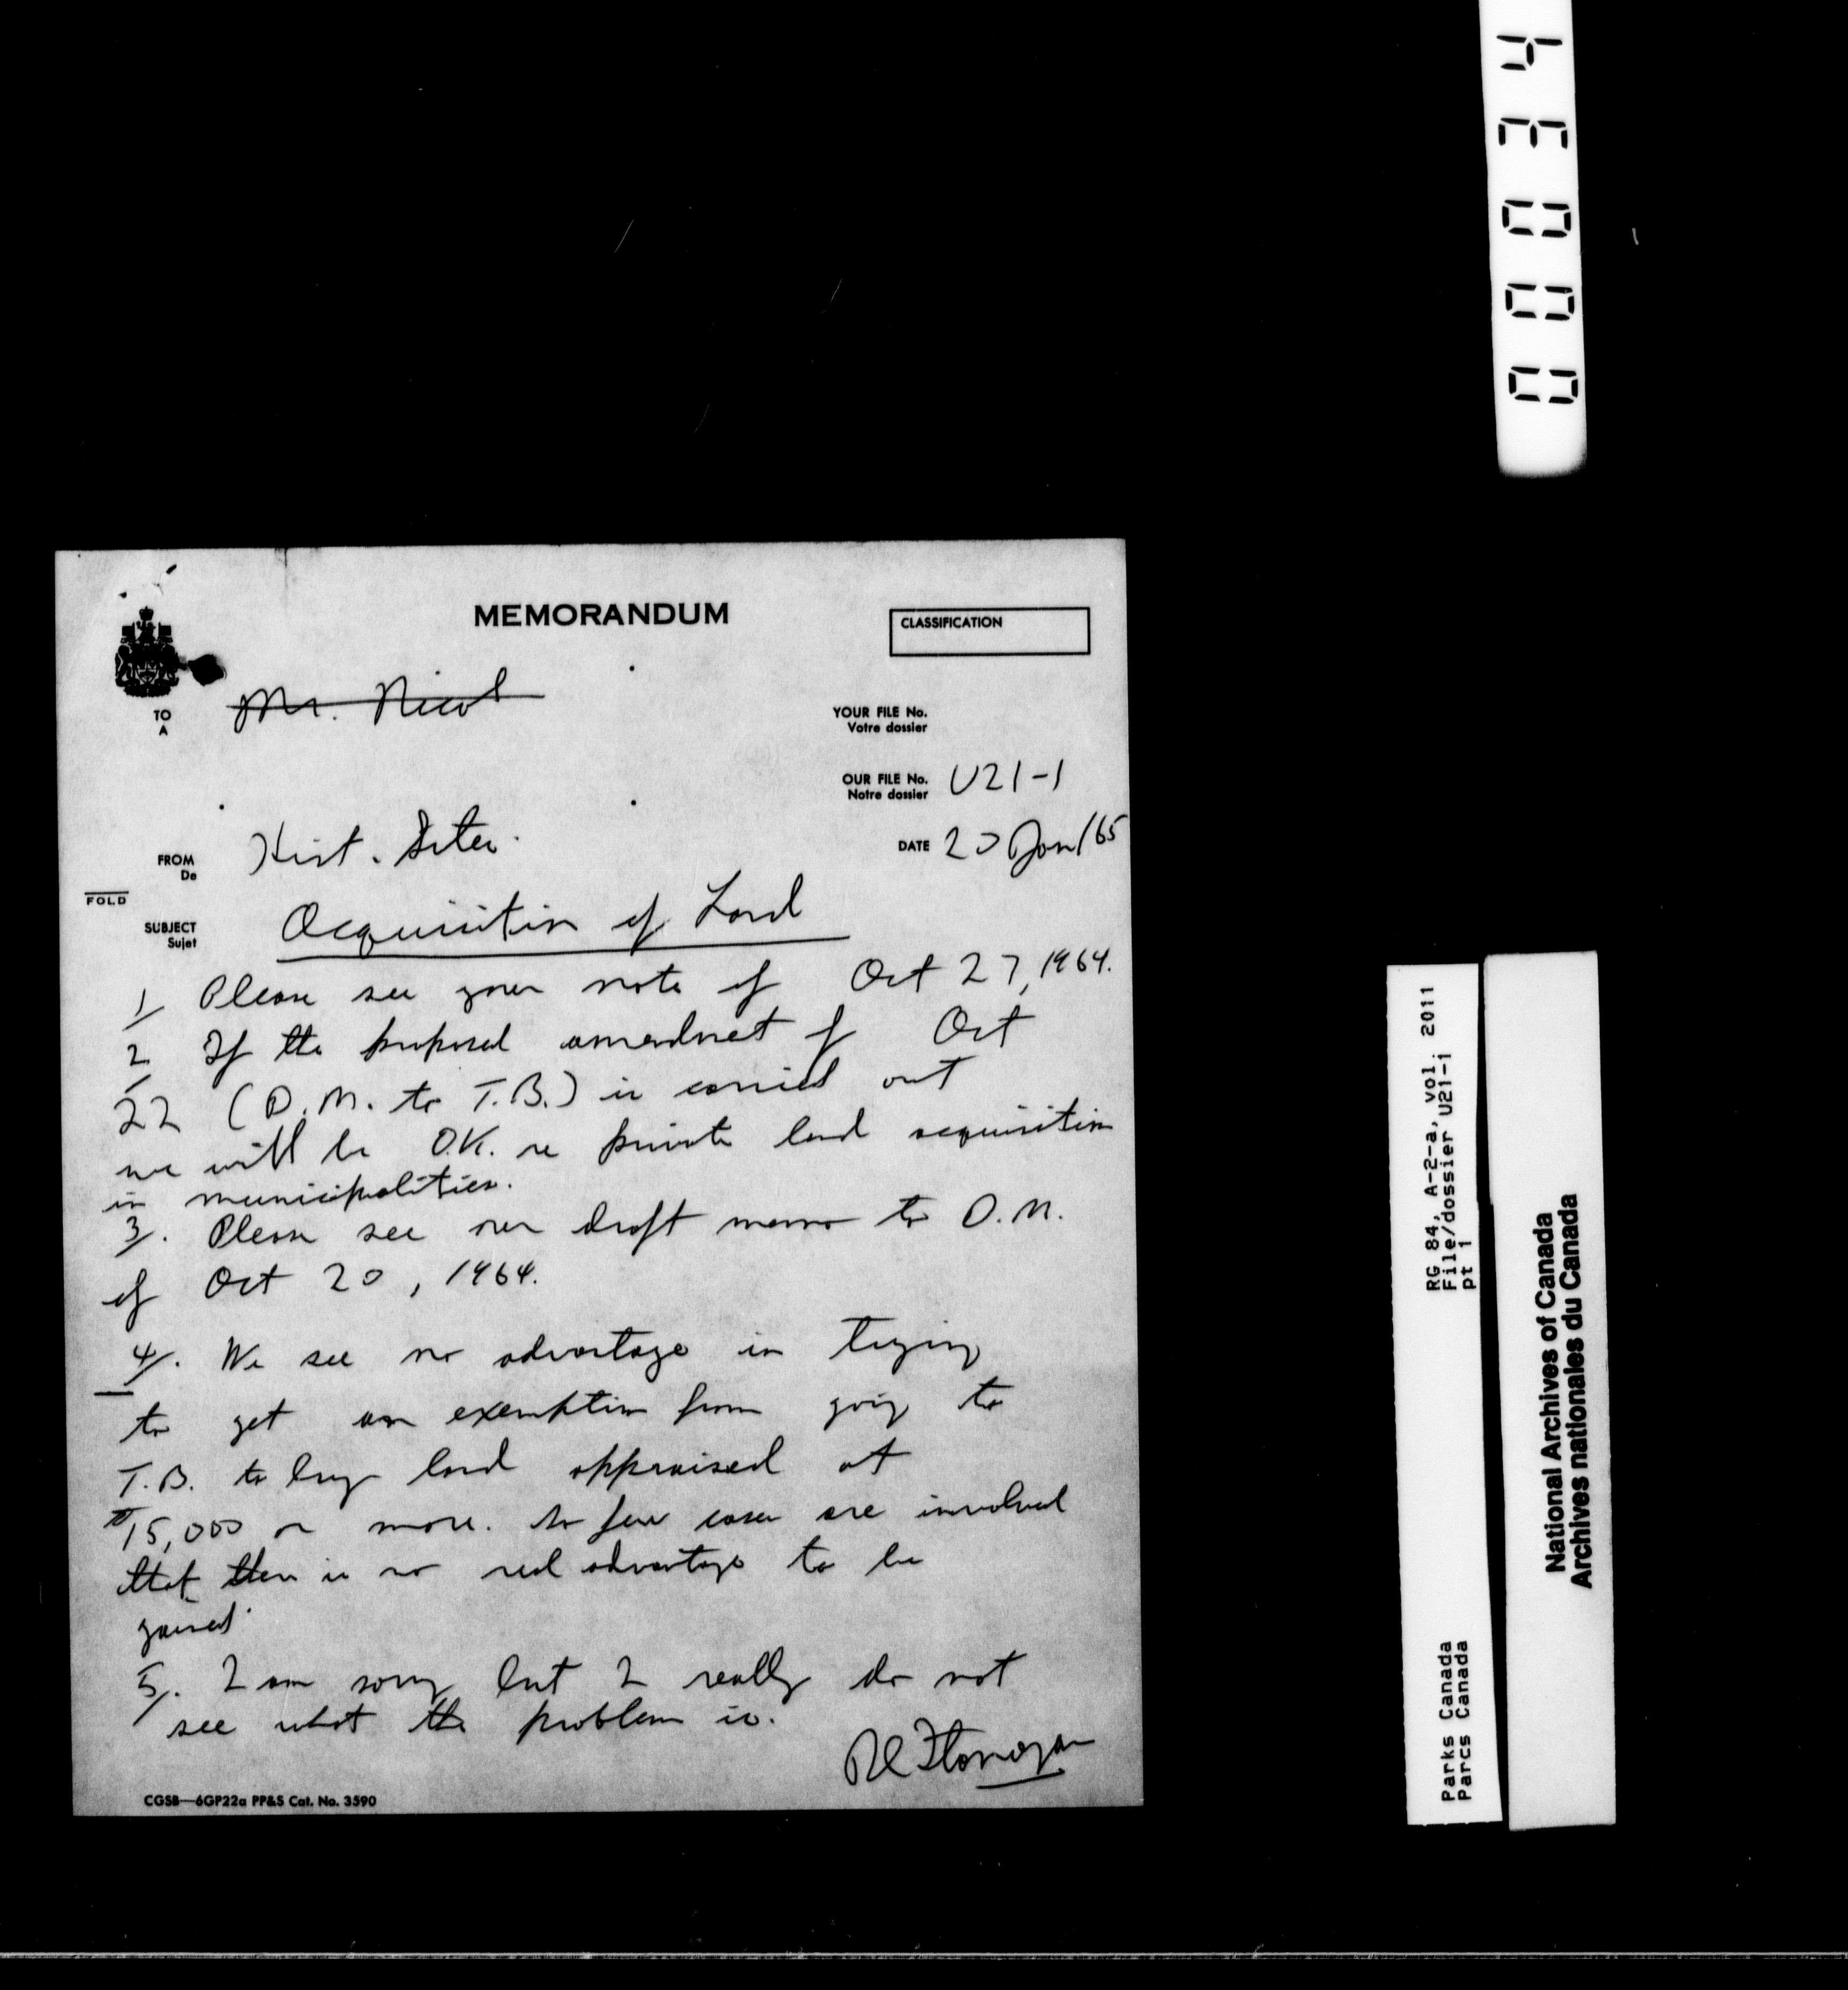 MEMORANDUM
CLASSIFICATION
TO
A
Mr. Nicol
YOUR FILE No.
Votre dossier
OUR FILE No.
Notre dossier
U21-1
FROM
De
Hist. Sites.
DATE 20 Jan/65
FOLD
SUBJECT
Sujet
Acquisition of Land
1/ Please see your note of Oct 27, 1964.
2 If the proposed amendment of Oct
22 (D.M. to T.B.) is carried out
we will be O.K. re private land acquisition
in municipalities.
3/. Please see our draft memo to D.M.
of Oct 20, 1964.
4/. We see no advantage in trying
to get an exemption from going to
T.B. to buy land appraised at
$15,000 or more. So few cases are involved
that there is no real advantage to be
gained.
5/. I am sorry but I really do not
see what the problem is.
Flanagan
CGSB—6GP22a PP&S Cat. No. 3590
RG 84, A-2-a, vol. 2011
File/dossier U21-1
pt 1
Parks Canada
Parcs Canada
National Archives of Canada
Archives nationales du Canada